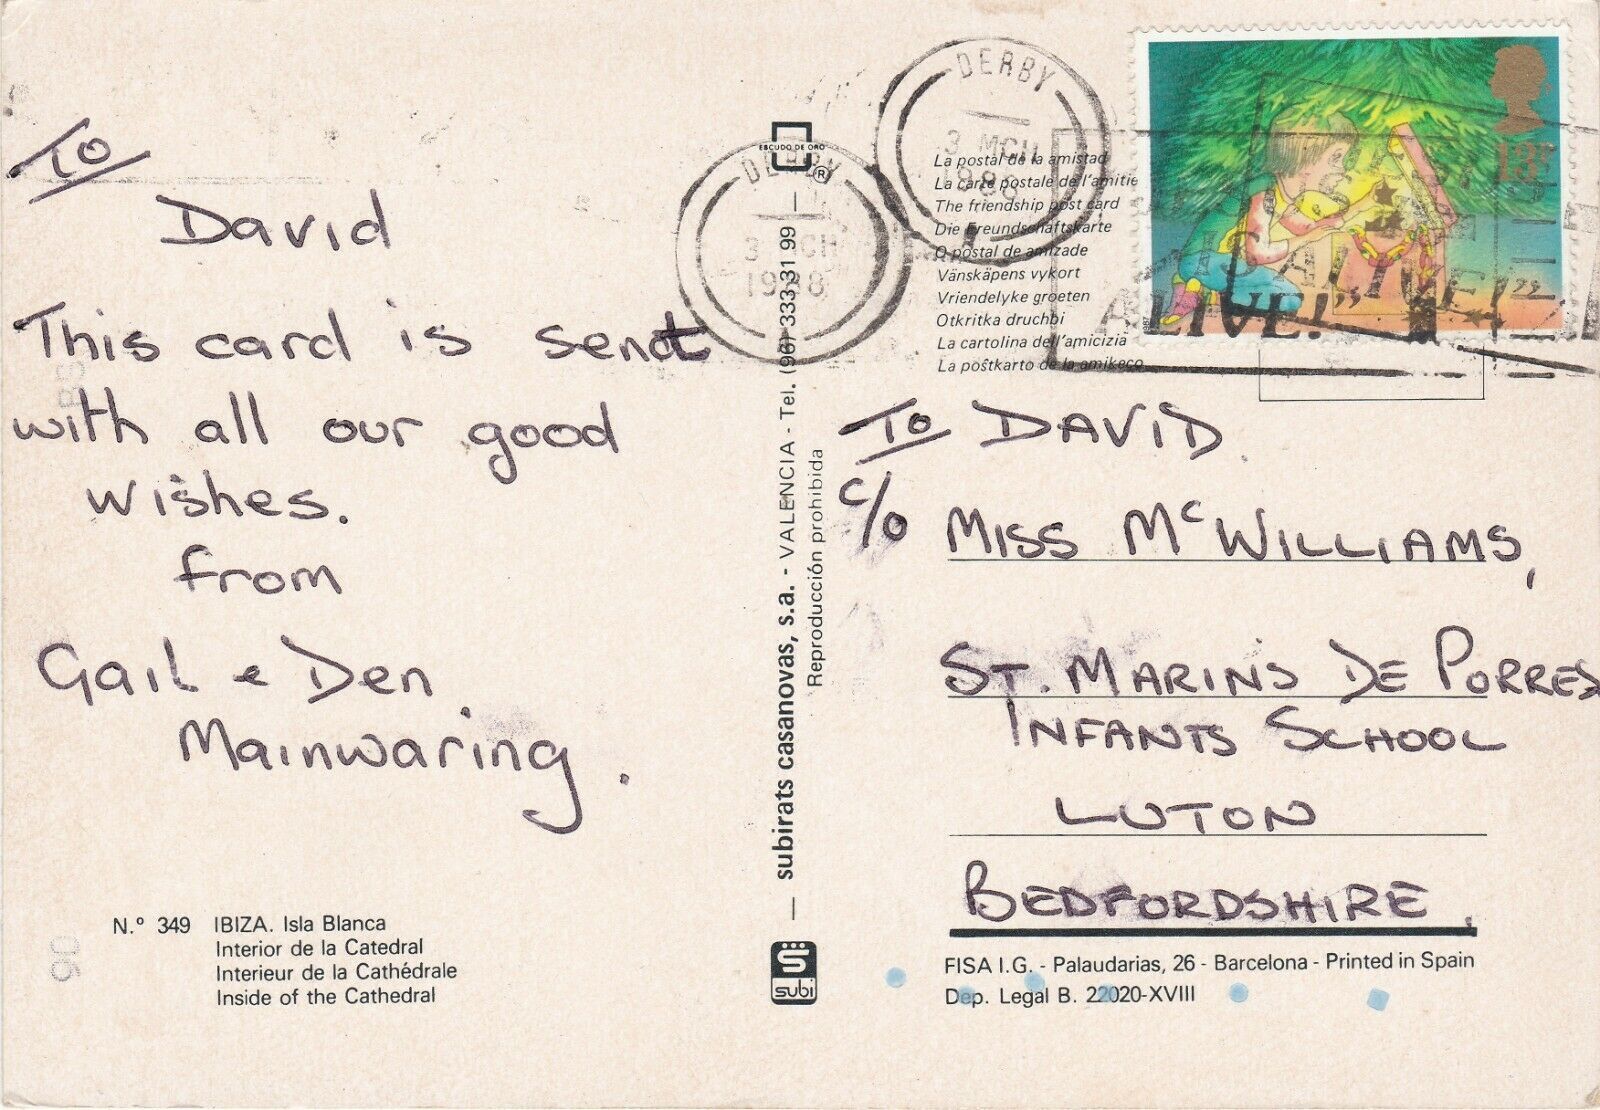 To
David
This card is sent
with all our good
wishes.
from
Gail e Den
Mainwaring.
N.º 349 IBIZA. Isla Blanca
Interior de la Catedral
Interieur de la Cathédrale
Inside of the Cathedral
ESCUDO DE ORO
®
subirats casanovas, s.a. - VALENCIA - Tel. (96) 333 31 99
Reproducción prohibida
subi
DERBY
3 MCH
1988
DERBY
3 MCH
1988
La postal de la amistad
La carte postale de l'amitie
The friendship post card
Die Freundschaftskarte
O postal de amizade
Vänskäpens vykort
Vriendelyke groeten
Otkritka druchbi
La cartolina dell'amicizia
La poŝtkarto de la amikeco
13P
ALIVE!"
ALIVE!"
To DAVID.
c/o MISS McWILLIAMS,
ST. MARINS DE PORRES
INFANTS SCHOOL
LUTON
BEDFORDSHIRE.
FISA I.G. - Palaudarias, 26 - Barcelona - Printed in Spain
Dep. Legal B. 22020-XVIII
06